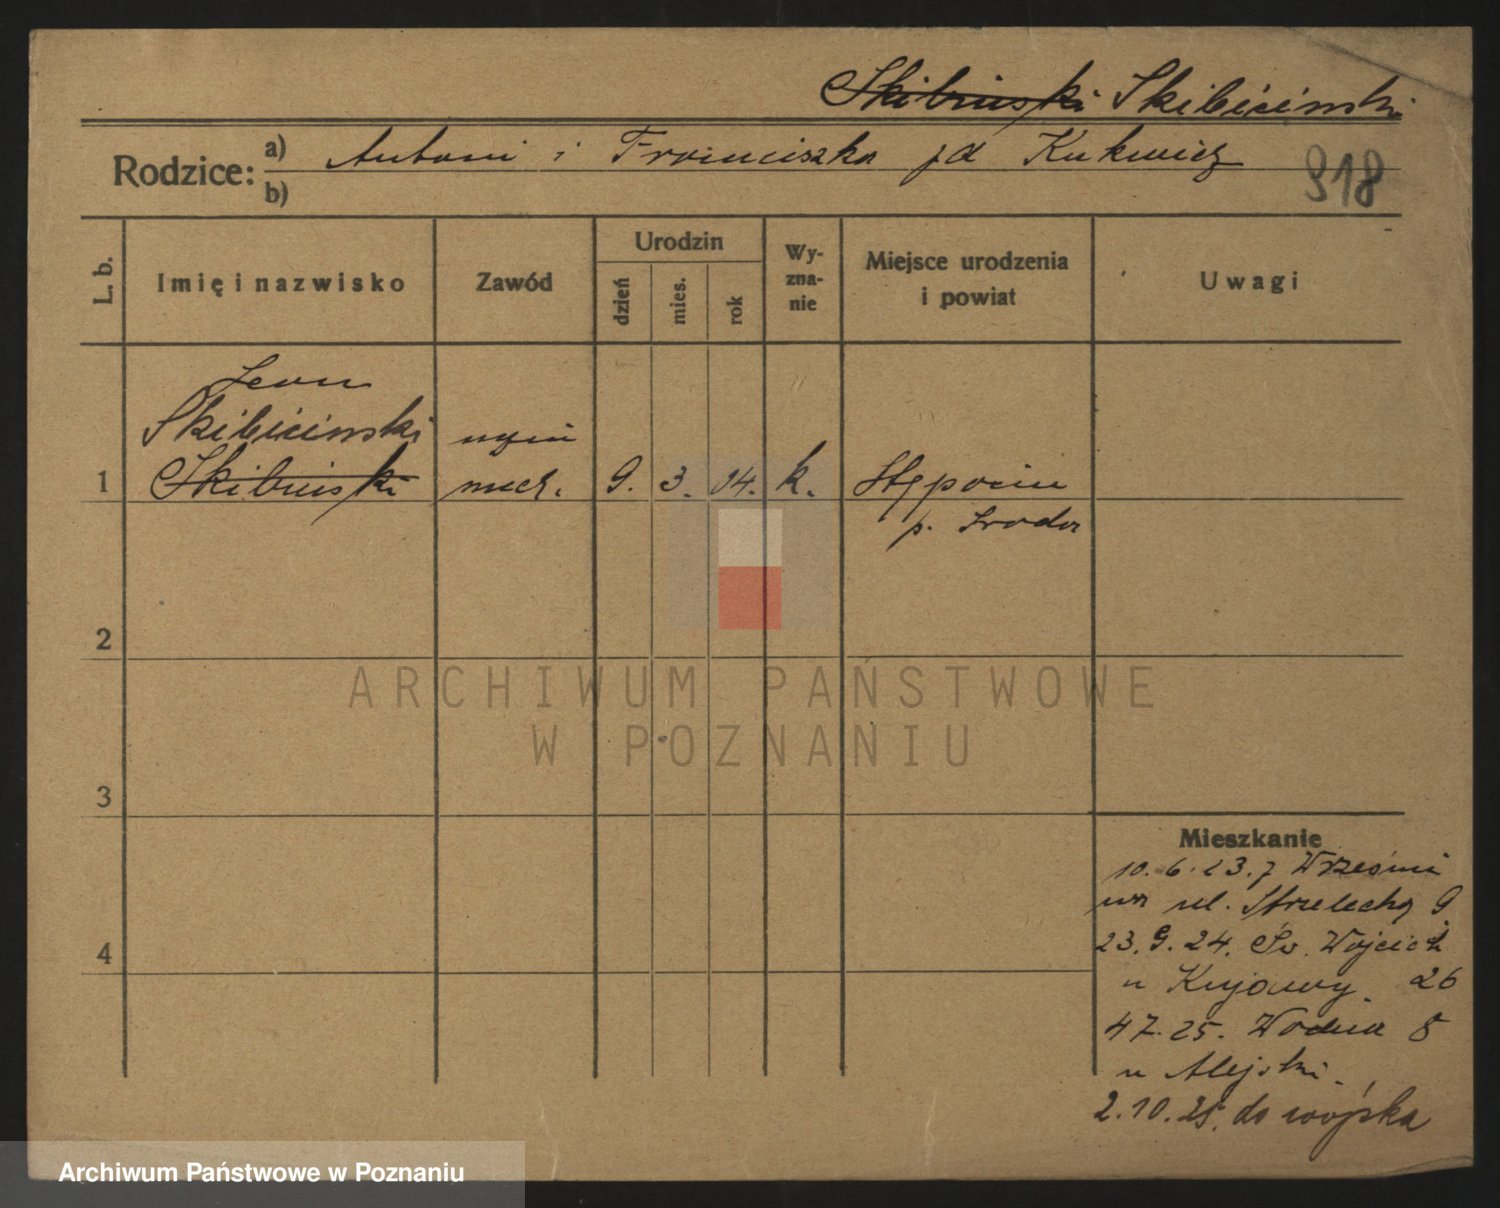 Skibinski Skibicinski
Rodzice: a) Antoni i Franciszka zd Kukwicz
b)
918
L. b.
Imię i nazwisko
Zawód
Urodzin
dzień
mies.
rok
Wy-
zna-
nie
Miejsce urodzenia
i powiat
Uwagi
Leon
Skibicinski
1 Skibinski
mech.
9. 3. 04. k.
Stępocin
p. Sroda
2
3
4
Mieszkanie
10. 6. 23. z Wrześni
ul. Strzelecka 9
23. 9. 24. Św. Wojciech
u Kujawy. 26
4 7. 25. Wodna 8
u Alejski.
2. 10. 25. do wojska
ARCHIWUM PAŃSTWOWE
W POZNANIU
Archiwum Państwowe w Poznaniu